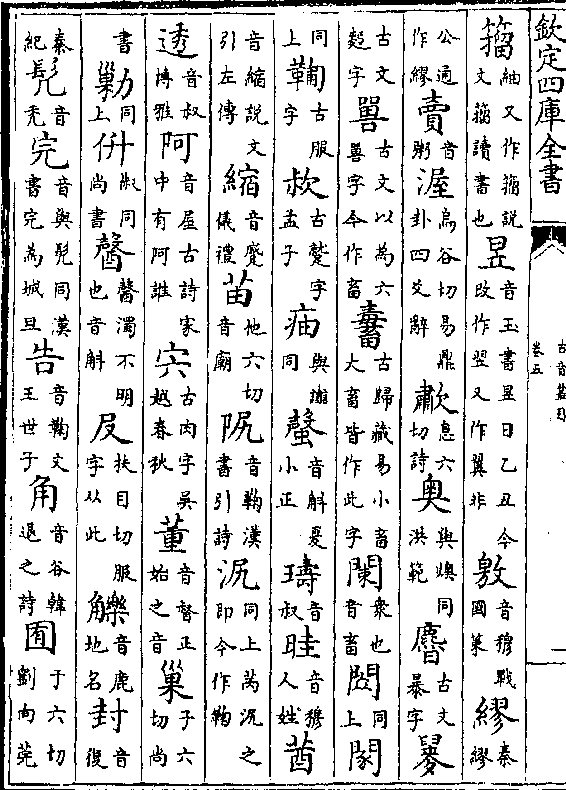 欽定四庫全書
古音叢目
卷五
一
籕紬又作籕説文籕讀書也昱音玉書昱日乙丑今改作翌又作翼非敫音穆戰國策繆秦繆
公通作繆賣音粥渥烏谷切易鼎卦四爻辭歗息六切詩奥與燠同洪範古文暴字
古文字嘼古文以為六嘼字今作畜古歸藏易小畜大畜皆作此字衆也音畜同上
同上鞫古服字敊古蹵字孟子與同音斛夏小正璹音叔畦音穆人姓莤
音縮説文引左傳縮音蹙儀禮苖他六切音廟阮音鞫漢書引詩同上芮之即今作鞫
透音叔博雅阿音屋古詩家中有阿誰宍古肉字吳越春秋董音督正始之音巢子六切尚
書勦同上同尚書濁不明也音斛𠬝扶目切服字从此觻音鹿地名封音復
秦紀髠音秃完音與髠同漢書完為城旦告音鞫文王世子角音谷韓退之詩囿于六切劉向莞